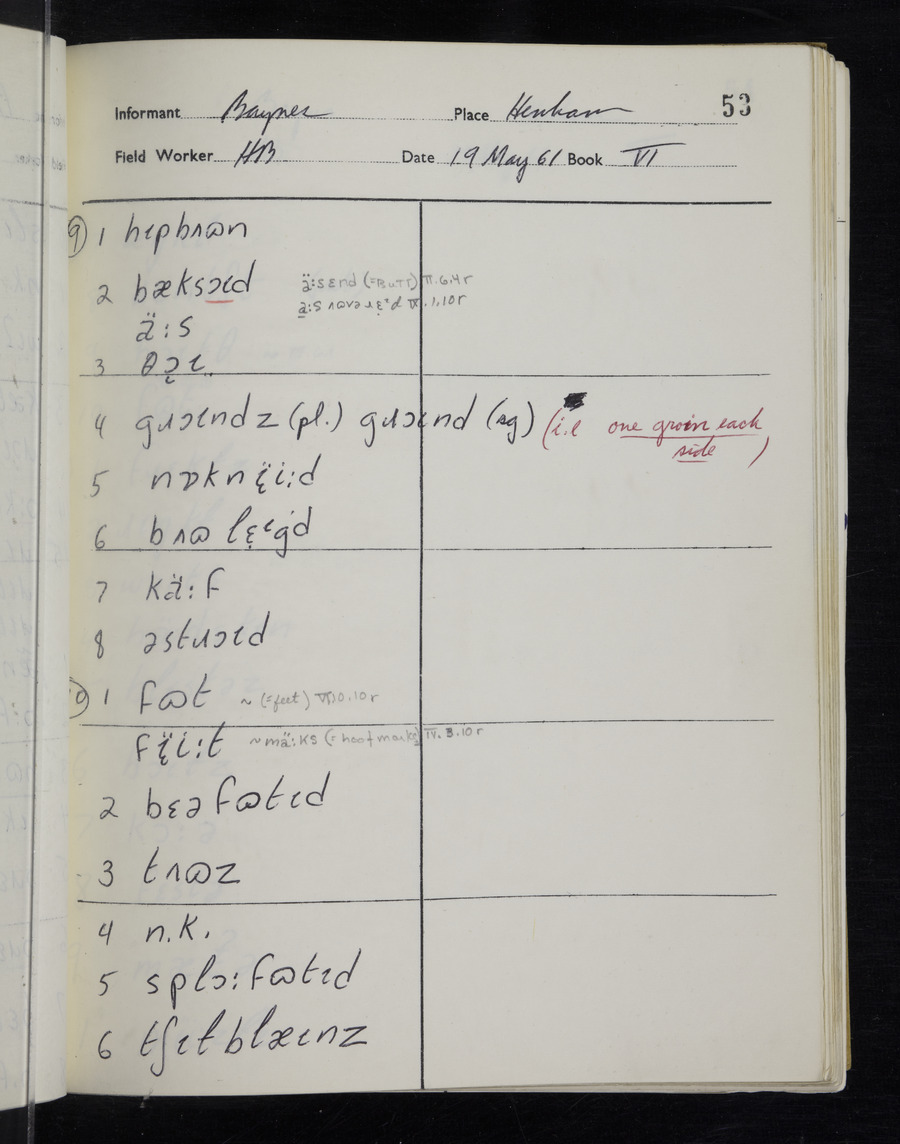 Informant Baynes Place Henham 53
Field Worker HB Date 19 May 61 Book VI
⑨ 1 hɩpbʌɷn
2 bæksɔɩd ä:send (=BUTT) IV.6.4r
ä:s
3 θɔ̜ɩ
4 gɹɔɩndz (pl.) gɹɔɩnd (sg) (i.e one groin each
side)
5 nɒknï:d
6 bʌɷ lɛ̜ᶦgd
7 kä:f
8 əstɹɔɩd
1 fɷt ~ (=feet) VI.10.10r
fɩ̈i:t ~ mä:ks (=hoofmarks) IV.3.10r
2 bɛəfɷtɩd
3 tʌɷz
4 n.k.
5 splɔ:fɷtɩd
6 tʃɩtblæɩnz